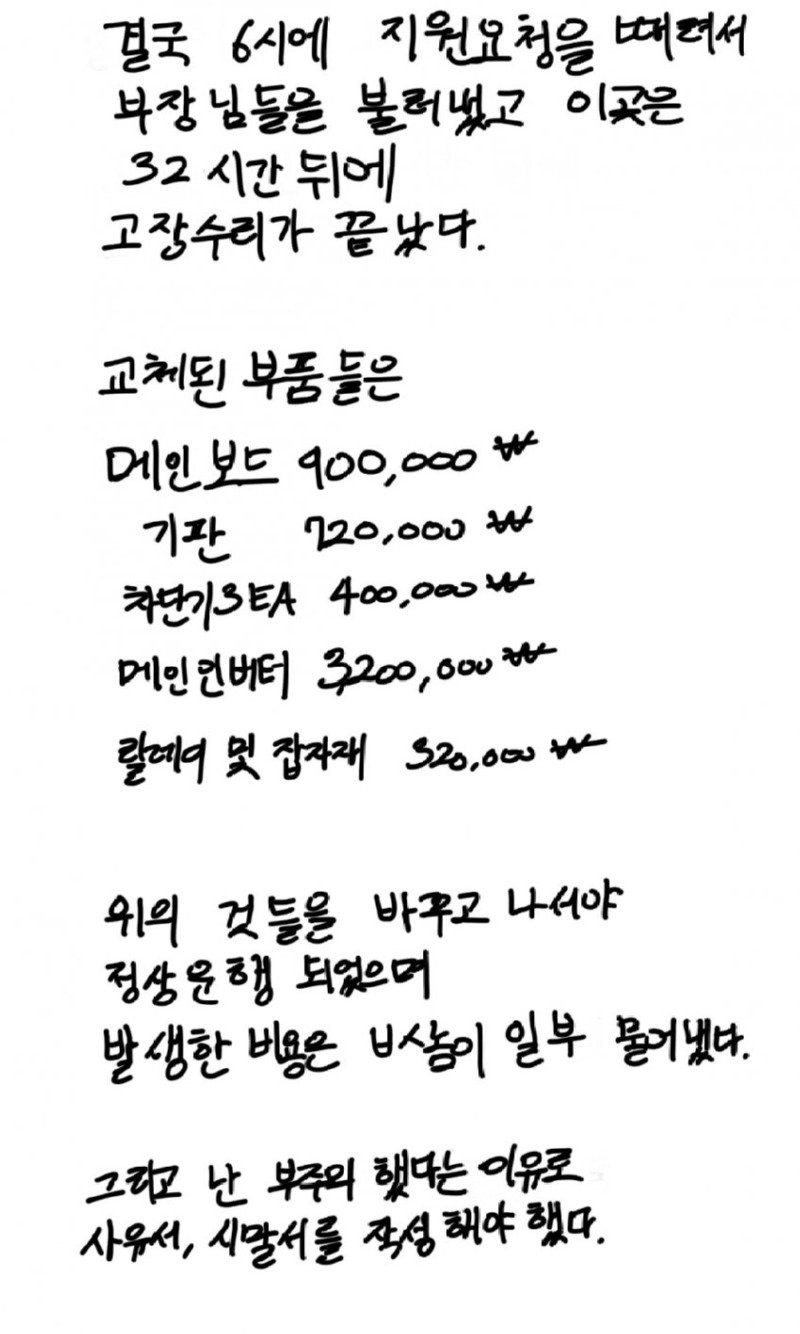 결국 6시에 지원요청을 때려서
부장님들을 불러냈고 이곳은
32시간 뒤에
고장수리가 끝났다.
교체된 부품들은
메인보드 900,000₩
기판 720,000₩
차단기3EA 400,000₩
메인인버터 3,200,000₩
릴레이 및 잡자재 320,000₩
위의 것들을 바꾸고 나서야
정상운행 되었으며
발생한 비용은 ㅂ시놈이 일부 물어냈다.
그리고 난 부주의 했다는 이유로
사유서, 시말서를 작성해야 했다.